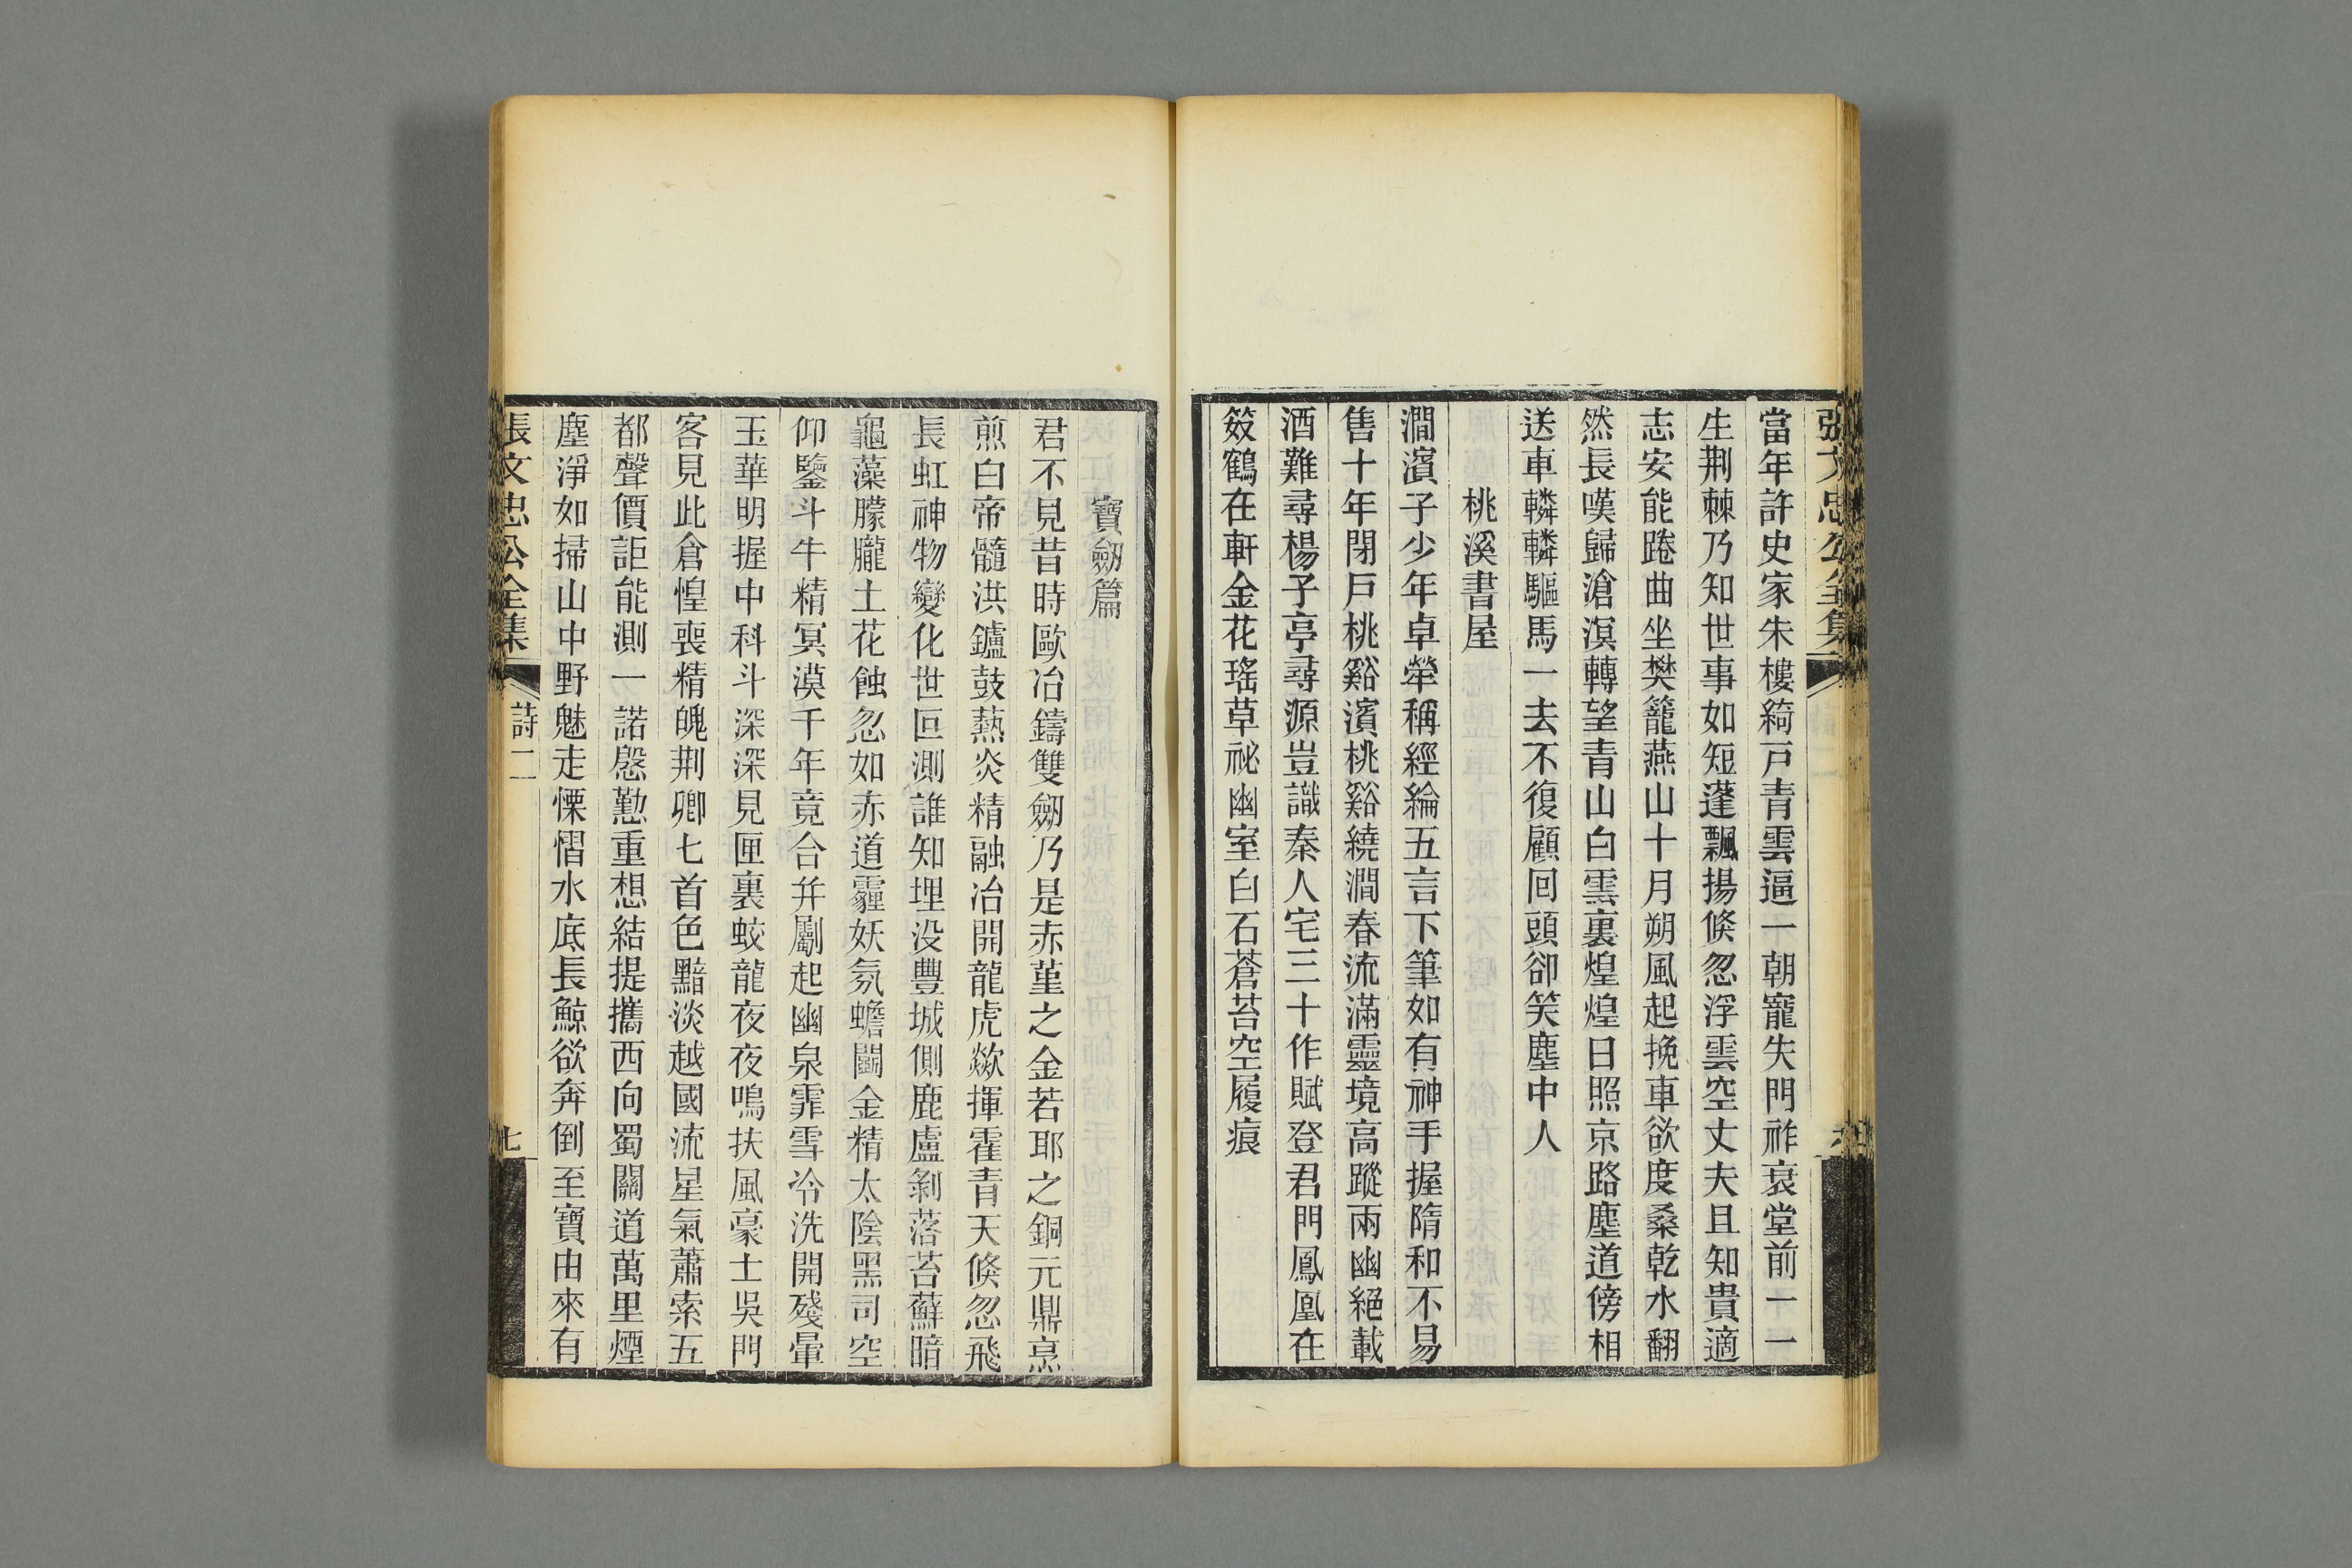 當年許史家朱樓綺戸青雲逼一朝寵失門祚衰堂前一一
生荆棘乃知世事如短蓬飄揚倏忽浮雲空丈夫且知貴適
志安能踡曲坐樊籠燕山十月朔風起挽車欲度桑乾水翻
然長嘆歸滄溟轉望青山白雲裏煌煌日照京路塵道傍相
送車轔轔驅馬一去不復顧回頭卻笑塵中人
桃溪書屋
澗濱子少年卓犖稱經綸五言下筆如有神手握隋和不易
售十年閉戸桃谿濱桃谿繞澗春流滿靈境高蹤兩幽絕載
酒難尋楊子亭尋源豈識秦人宅三十作賦登君門鳳凰在
笯鶴在軒金花瑤草祕幽室白石蒼苔空履痕
寶劒篇
君不見昔時歐冶鑄雙劒乃是赤堇之金若耶之銅元鼎烹
煎白帝髓洪鑪鼓爇炎精融冶開龍虎歘揮霍青天倏忽飛
長虹神物變化世叵測誰知埋没豐城側鹿盧剝落苔蘚暗
龜藻朦朧土花蝕忽如赤道霾妖氛蟾鬭金精太陰黑司空
仰鑒斗牛精冥漠千年竟合并劚起幽泉霏雪冷洗開殘暈
玉華明握中科斗深深見匣裏蛟龍夜夜鳴扶風豪士吳門
客見此倉惶喪精魄荆卿七首色黯淡越國流星氣蕭索五
都聲價詎能測一諾慇懃重想結提攜西向蜀關道萬里煙
塵淨如掃山中野魅走慄慴水底長鯨欲奔倒至寶由來有
張文忠公全集
詩二
七